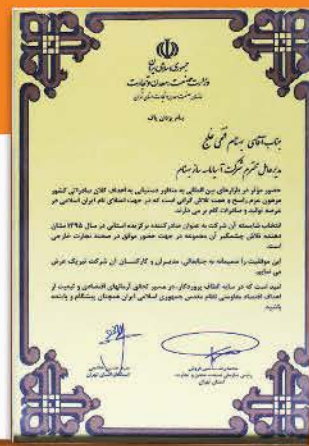 جمهوری اسلامی ایران
وزارت صنعت، معدن و تجارت
سازمان صنعت، معدن و تجارت استان تهران
بنام یزدان پاک
جناب آقای بهنام فتحی خلج
مدیرعامل محترم شرکت آسیابامه ساز بهنام
حضور موثر در بازارهای بین المللی به منظور دستیابی به اهداف کلان صادراتی کشور
مرهون عزم راسخ و همت تلاش گرانی است که در جهت اعتلای نام ایران اسلامی در
عرصه تولید و صادرات گام بر می دارند.
انتخاب شایسته آن شرکت به عنوان صادرکننده برگزیده استانی در سال ۱۳۹۵ نشان
دهنده تلاش چشمگیر آن مجموعه در جهت حضور موفق در صحنه تجارت خارجی
است.
این موفقیت را صمیمانه به جنابعالی، مدیران و کارکنان آن شرکت تبریک عرض
می نماییم.
امید است که در سایه الطاف پروردگار، در مسیر تحقق آرمانهای اقتصادی و تبعیت از
اهداف اقتصاد مقاومتی نظام مقدس جمهوری اسلامی ایران همچنان پیشگام و پاینده
باشید.
رئیس سازمان صنعت، معدن و تجارت
استان تهران
استاندار تهران